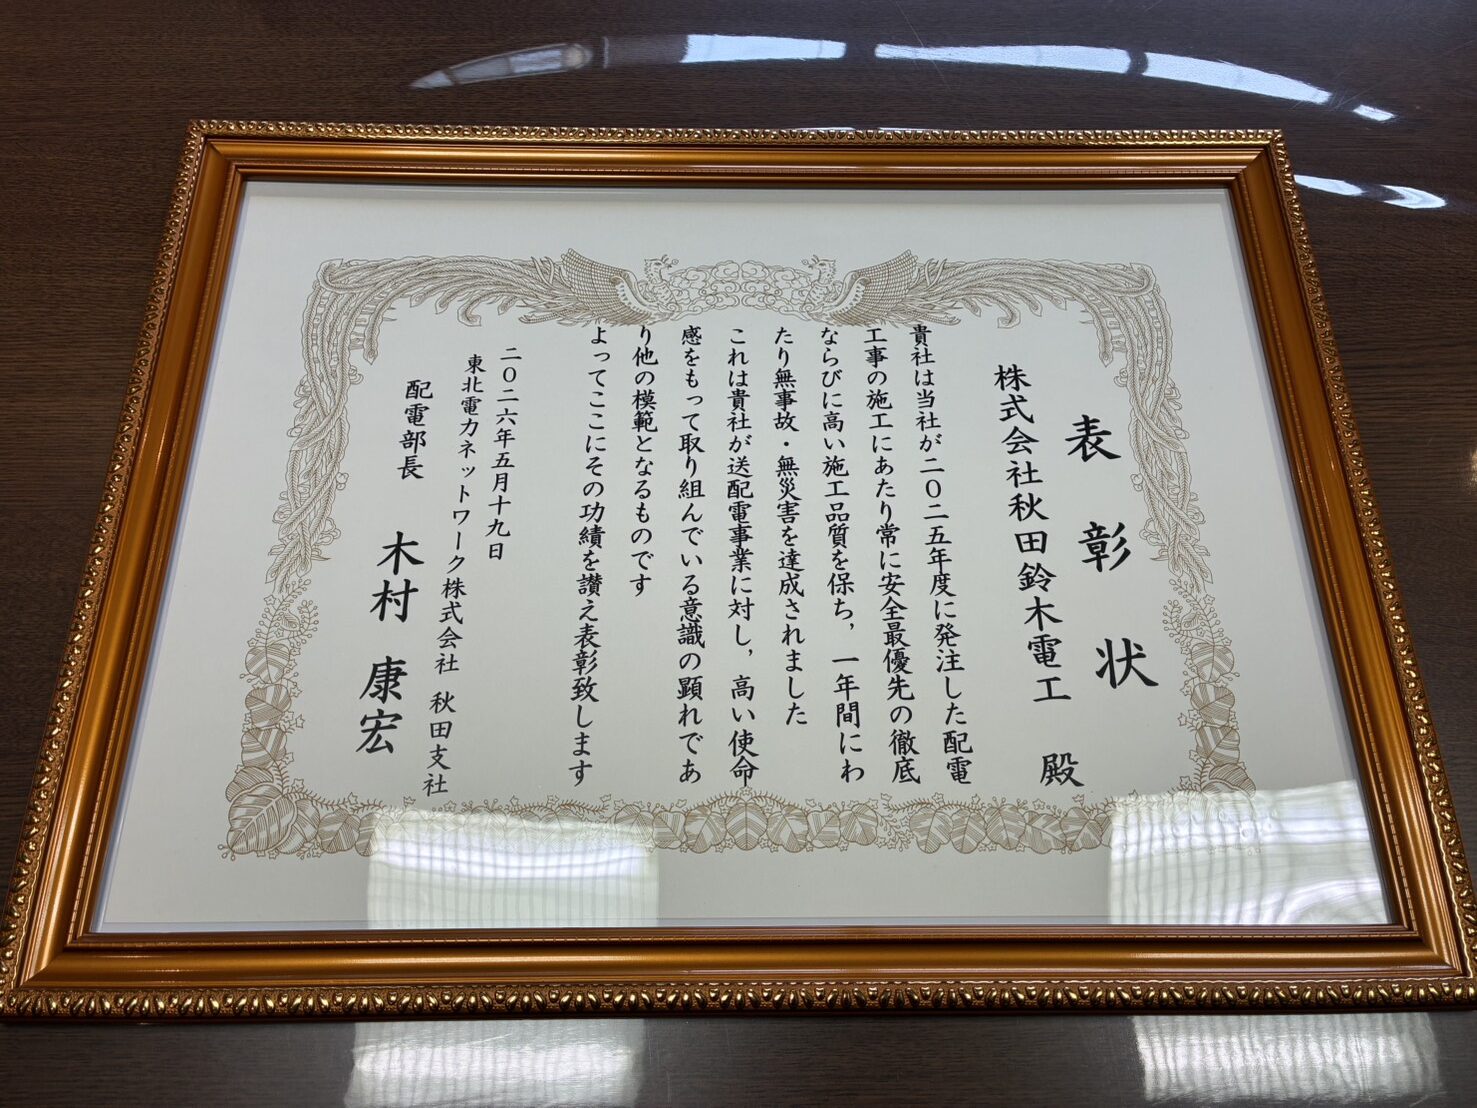 表彰状
株式会社秋田鈴木電工 殿
貴社は当社が二〇二五年度に発注した配電
工事の施工にあたり常に安全最優先の徹底
ならびに高い施工品質を保ち，一年間にわ
たり無事故・無災害を達成されました
これは貴社が送配電事業に対し，高い使命
感をもって取り組んでいる意識の顕れであ
り他の模範となるものです
よってここにその功績を讃え表彰致します
二〇二六年五月十九日
東北電力ネットワーク株式会社 秋田支社
配電部長 木村 康宏